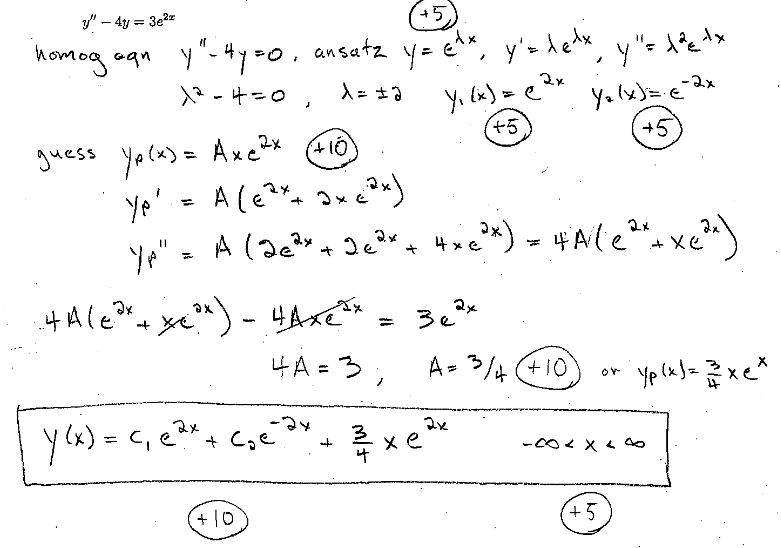 y'' − 4y = 3e^{2x} (+5)
homog eqn y'' - 4y = 0, ansatz y = e^{λx}, y' = λe^{λx}, y'' = λ²e^{λx}
λ² - 4 = 0, λ = ±2 y₁(x) = e^{2x} y₂(x) = e^{-2x}
(+5) (+5)
guess yp(x) = Axe^{2x} (+10)
yp' = A(e^{2x} + 2xe^{2x})
yp'' = A(2e^{2x} + 2e^{2x} + 4xe^{2x}) = 4A(e^{2x} + xe^{2x})
4A(e^{2x} + xe^{2x}) - 4Axe^{2x} = 3e^{2x}
4A = 3, A = 3/4 (+10) or yp(x) = 3/4 xe^x
y(x) = c₁e^{2x} + c₂e^{-2x} + 3/4 xe^{2x} -∞ < x < ∞
(+10) (+5)